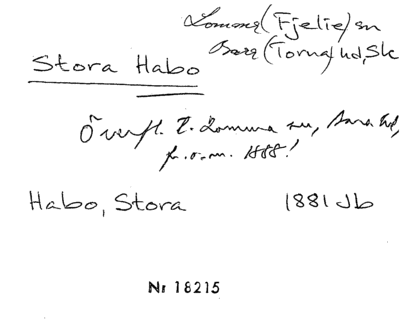 Lomma (Fjelie) sn
Bara (Torna) hd, Sk
Stora Habo
Överfl. t. Lomma sn, Bara hd,
fr.o.m. 1888!
Habo, Stora 1881 Jb
Nr 18215